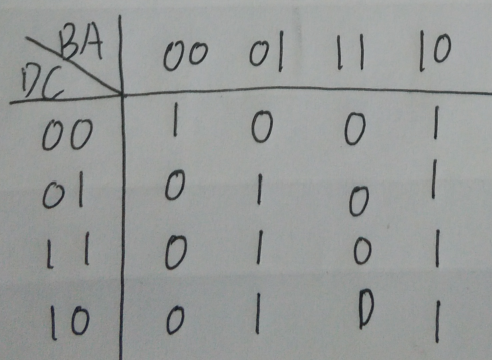 BA 00 01 11 10
DC
00 1 0 0 1
01 0 1 0 1
11 0 1 0 1
10 0 1 D 1